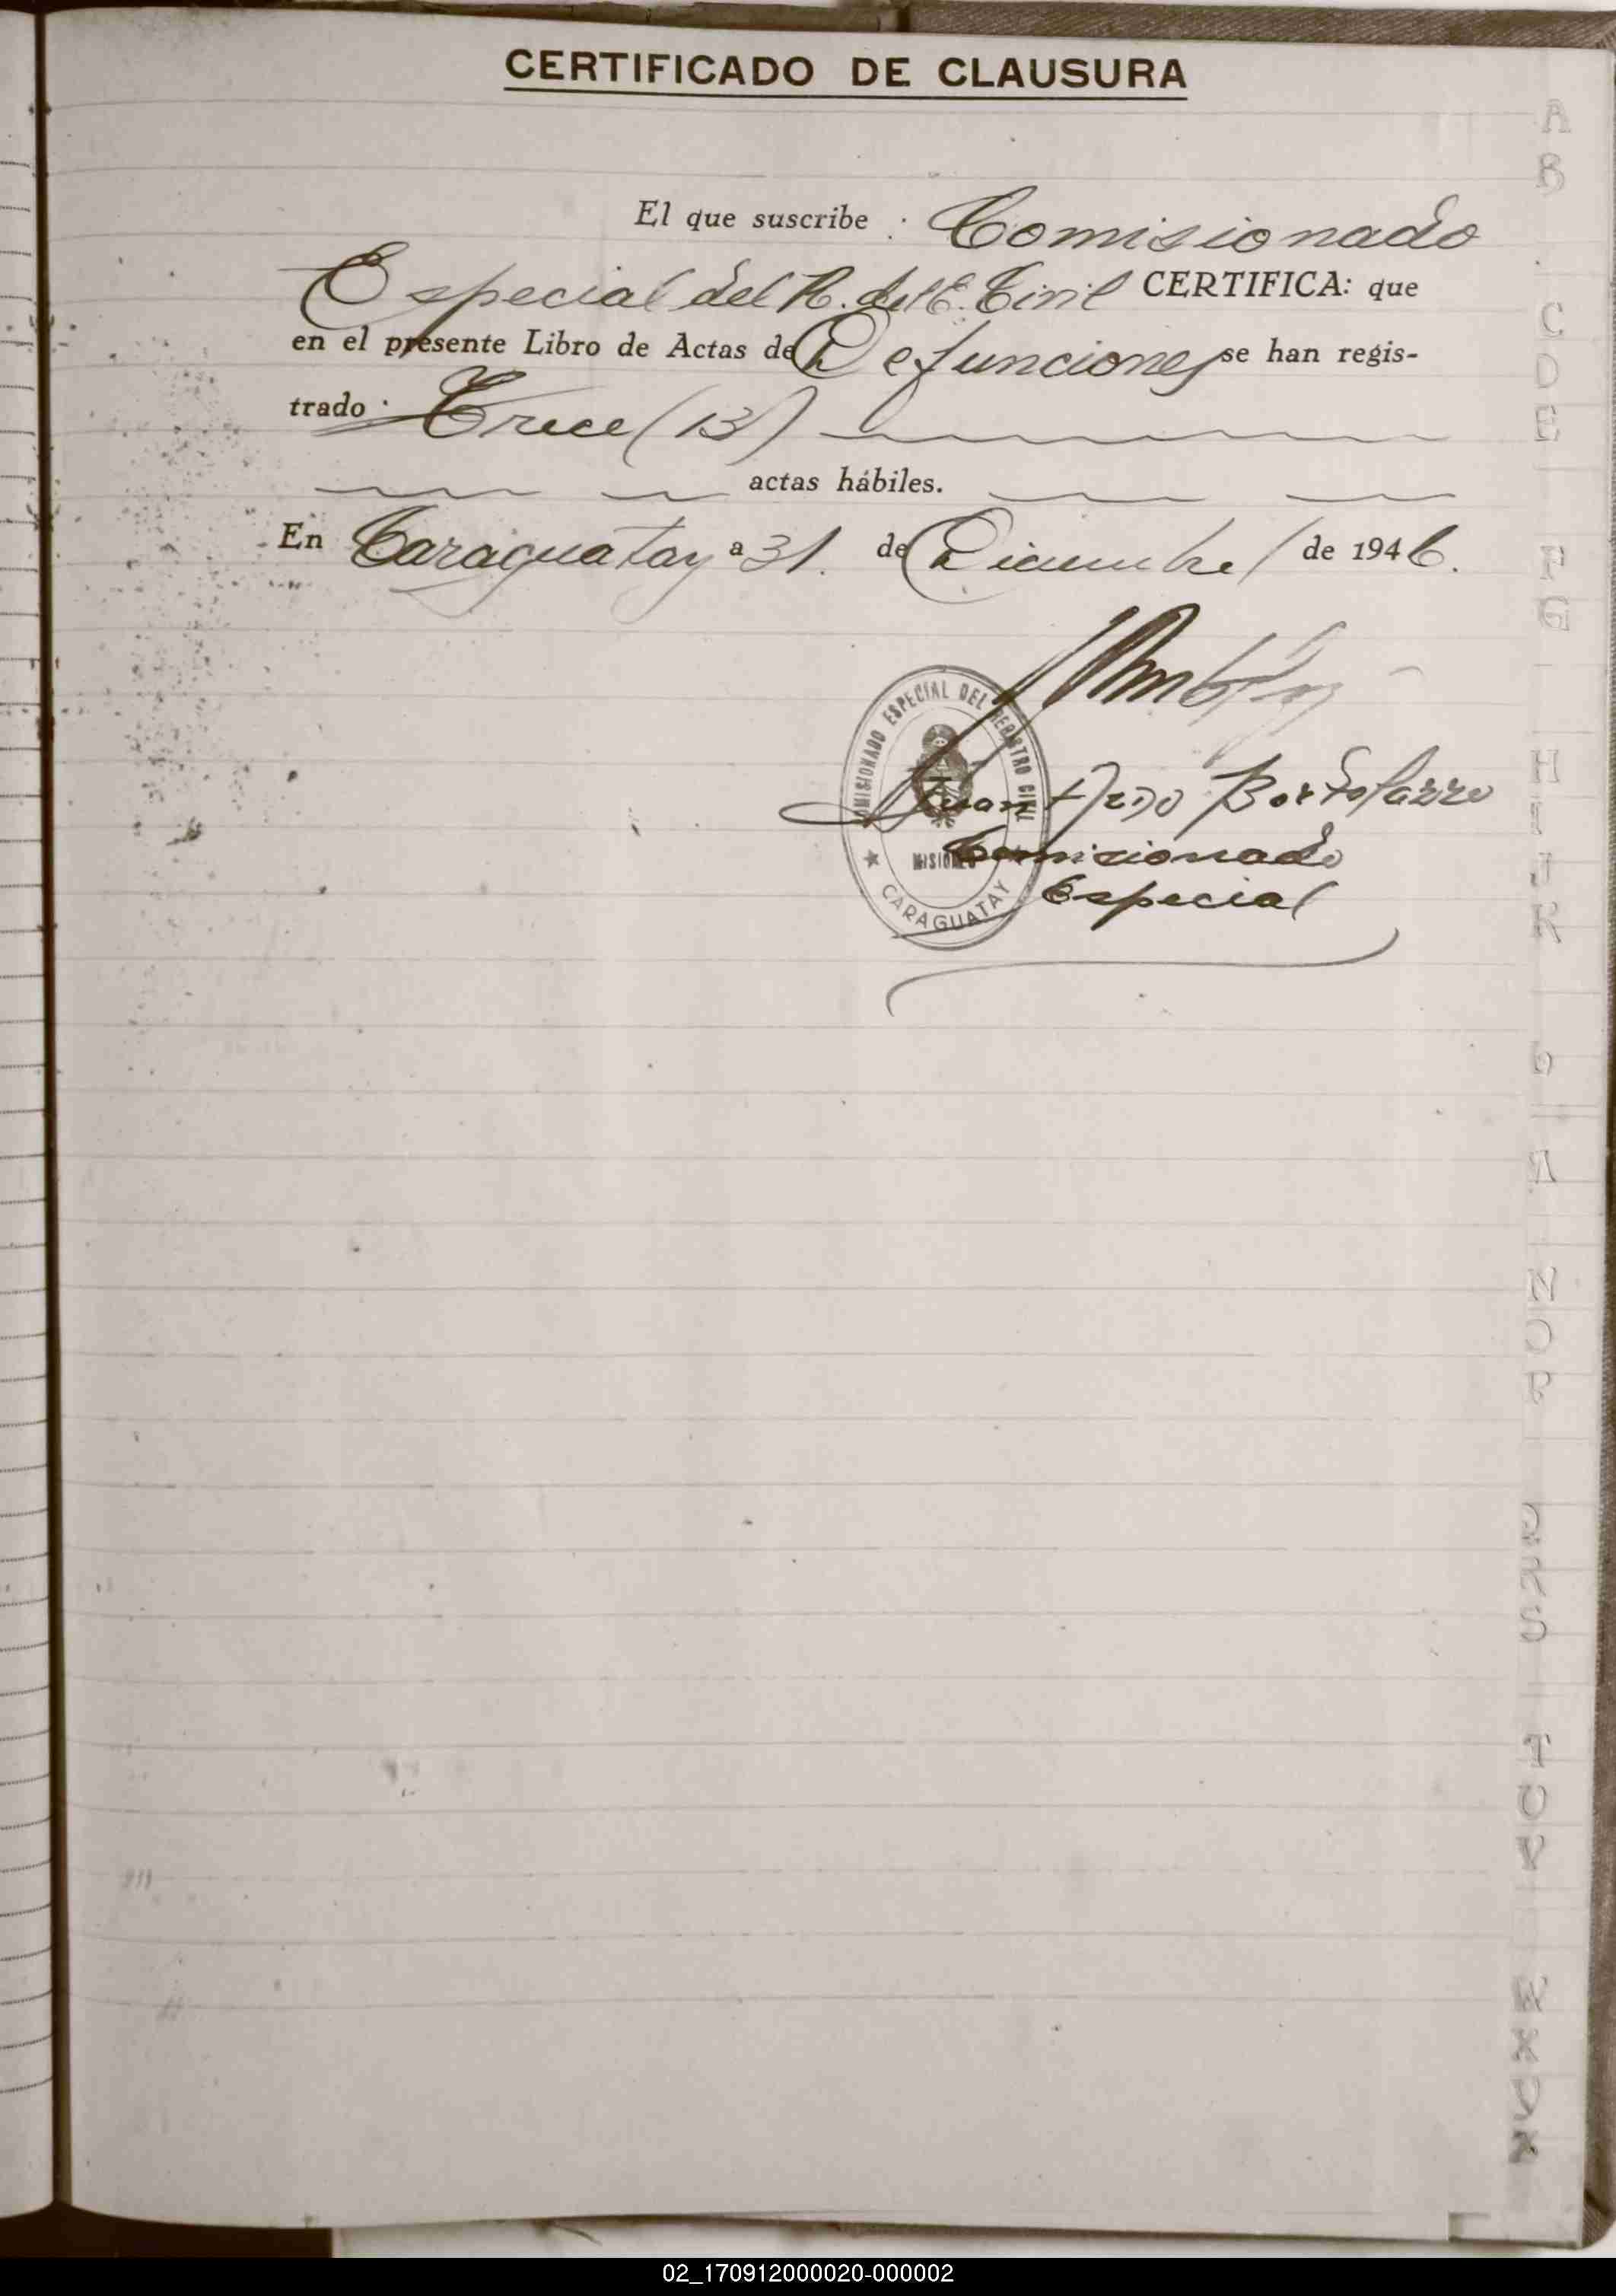 CERTIFICADO DE CLAUSURA
El que suscribe : Comisionado
Especial del R. del E. Civil CERTIFICA: que
en el presente Libro de Actas de Defunciones se han regis-
trado Trece (13)
actas hábiles.
En Caraguatay a 31. de Diciembre de 1946.
COMISIONADO ESPECIAL DEL REGISTRO CIVIL
MISIONES
CARAGUATAY
Juan
Comisionado
Especial
A
B
C
D
E
F
G
H
I
J
K
N
O
P
Q
R
S
T
U
V
W
X
Y
Z
02_170912000020-000002